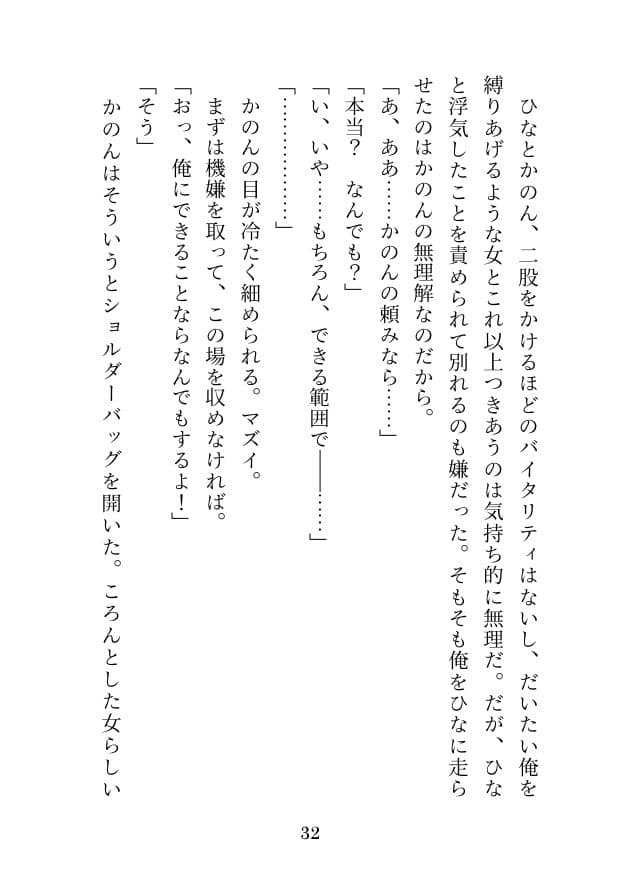 ひなとかのん、二股をかけるほどのバイタリティはないし、だいたい俺を
縛りあげるような女とこれ以上つきあうのは気持ち的に無理だ。だが、ひな
と浮気したことを責められて別れるのも嫌だった。そもそも俺をひなに走ら
せたのはかのんの無理解なのだから。
「あ、ああ……かのんの頼みなら……」
「本当？　なんでも？」
「い、いや……もちろん、できる範囲で――……」
「………………」
　かのんの目が冷たく細められる。マズイ。
　まずは機嫌を取って、この場を収めなければ。
「おっ、俺にできることならなんでもするよ！」
「そう」
　かのんはそういうとショルダーバッグを開いた。ころんとした女らしい
32